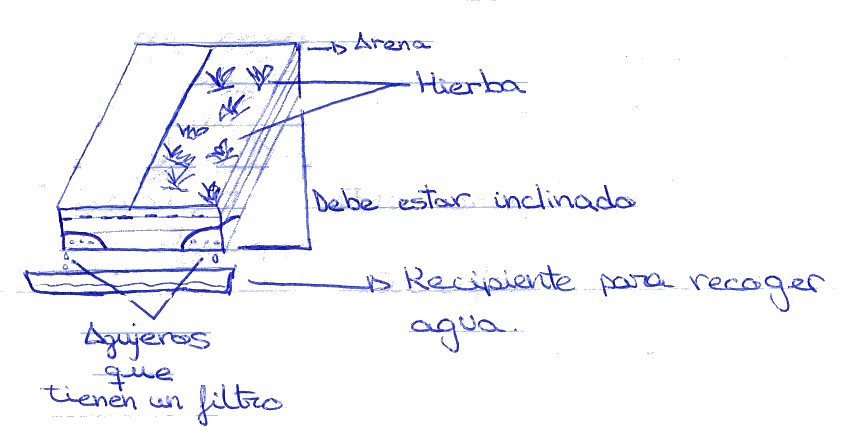 Arena
Hierba
Debe estar inclinado
Recipiente para recoger
agua.
Agujeros
que
tienen un filtro